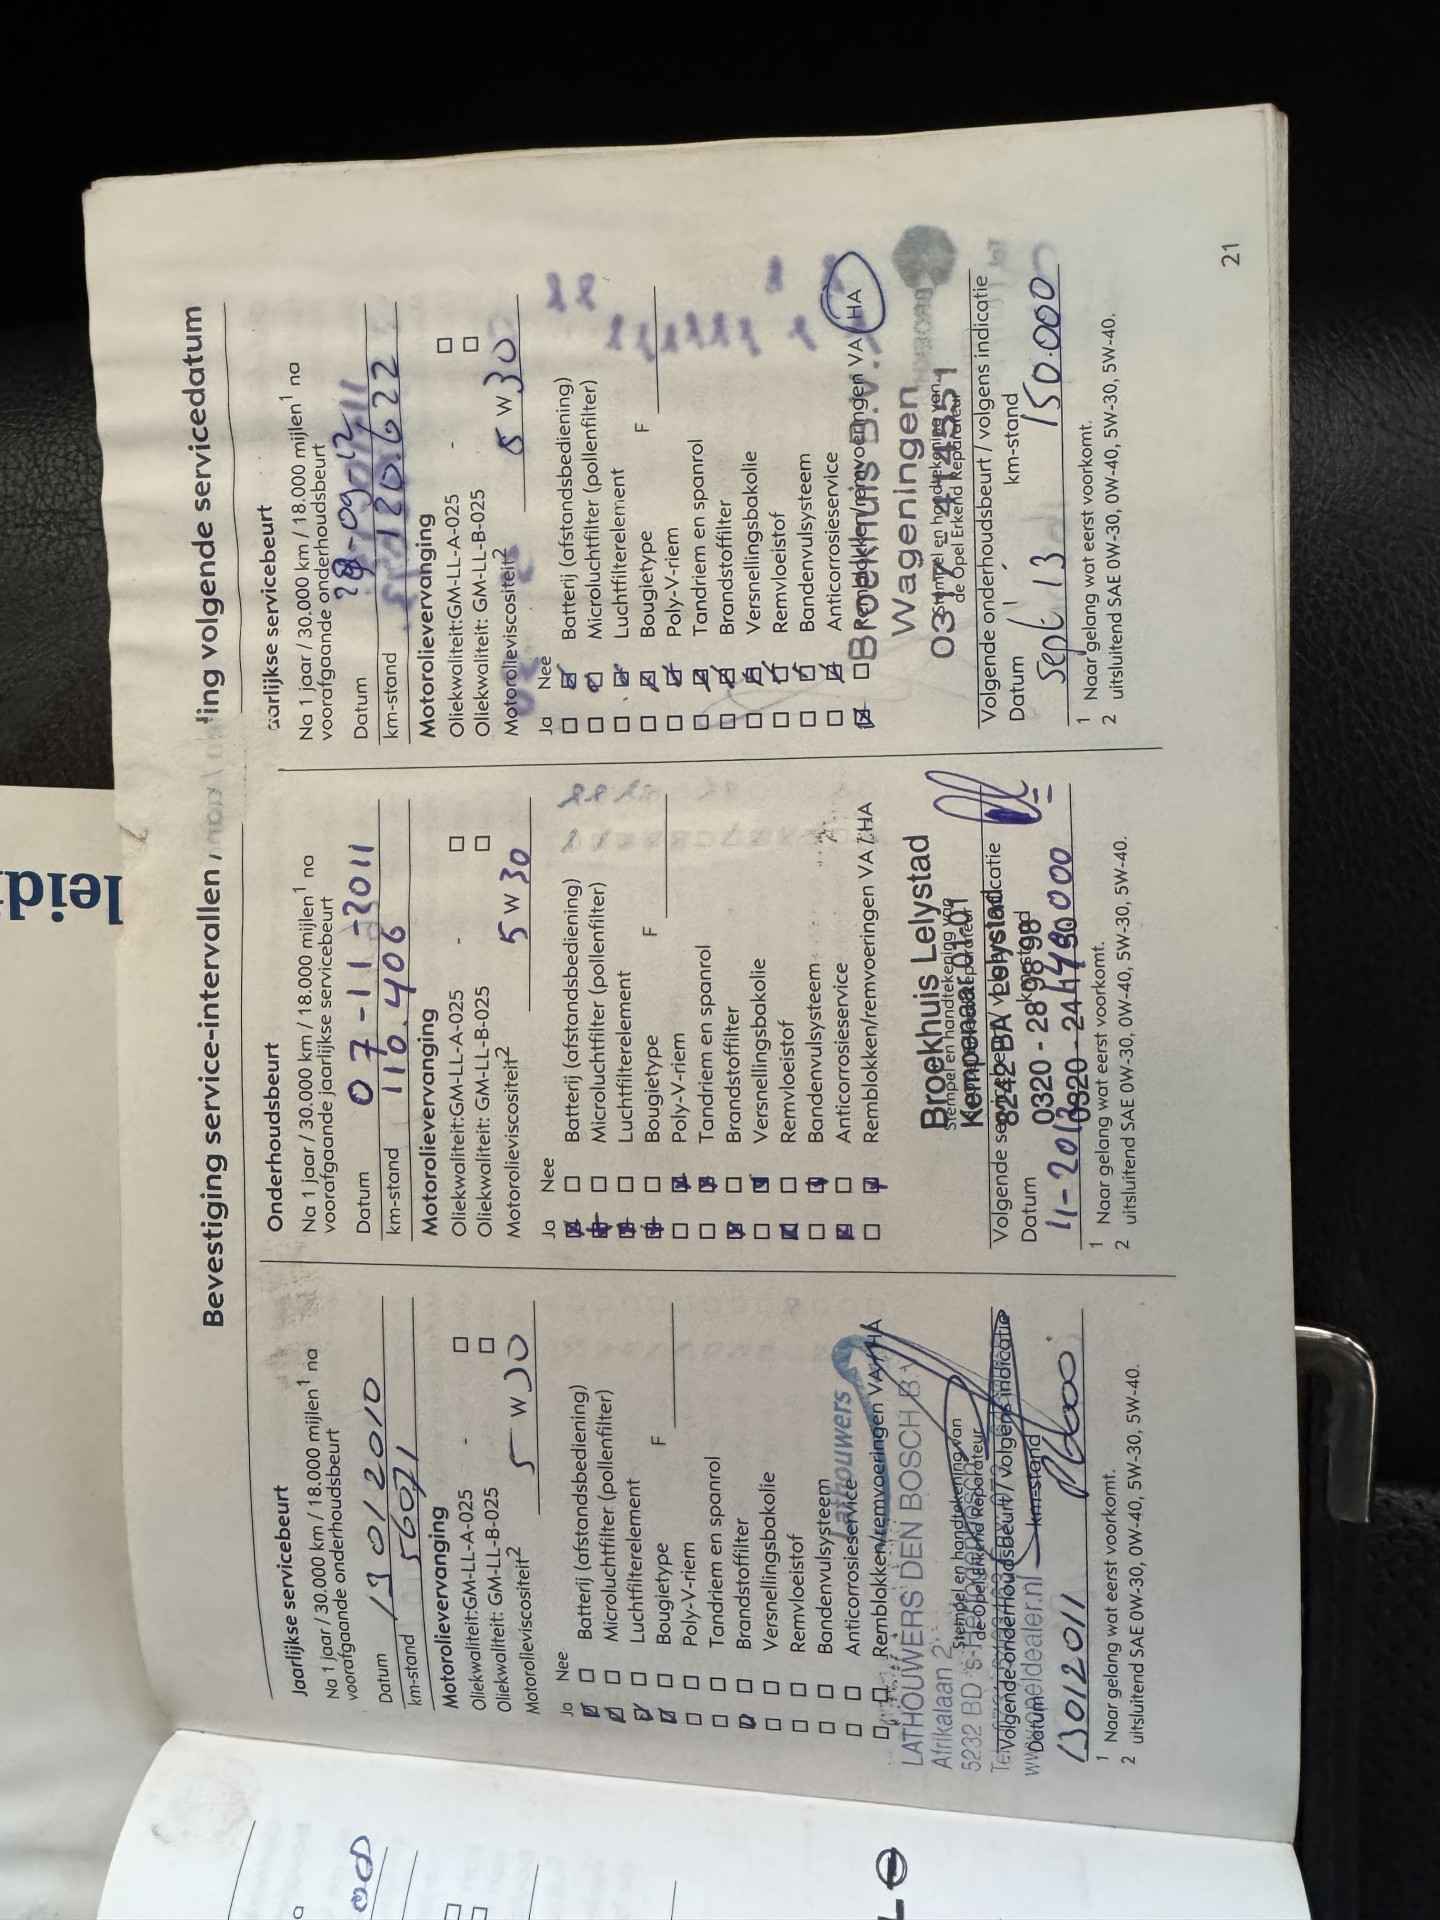 Bevestiging service-intervallen
ling volgende servicedatum
Jaarlijkse servicebeurt
Na 1 jaar / 30.000 km / 18.000 mijlen¹ na
voorafgaande onderhoudsbeurt
Datum 13 01 2010
km-stand 56071
Motorolievervanging
Oliekwaliteit:GM-LL-A-025 - □
Oliekwaliteit: GM-LL-B-025 □
Motorolieviscositeit² 5 W 30
Ja Nee
☒ □ Batterij (afstandsbediening)
☒ □ Microluchtfilter (pollenfilter)
☒ □ Luchtfilterelement
☒ □ Bougietype F
□ □ Poly-V-riem
□ □ Tandriem en spanrol
☒ □ Brandstoffilter
□ □ Versnellingsbakolie
□ □ Remvloeistof
□ □ Bandenvulsysteem
□ □ Anticorrosieservice
□ □ Remblokken/remvoeringen VA/HA
Lathouwers
LATHOUWERS DEN BOSCH B.V.
Afrikalaan 2
Stempel en handtekening van
5232 BD
de Opel Erkend Reparateur
Volgende onderhoudsbeurt / volgens indicatie
Datum km-stand
www.opeldealer.nl
13012011
1 Naar gelang wat eerst voorkomt.
2 uitsluitend SAE 0W-30, 0W-40, 5W-30, 5W-40.
Onderhoudsbeurt
Na 1 jaar / 30.000 km / 18.000 mijlen¹ na
voorafgaande jaarlijkse servicebeurt
Datum 07-11-2011
km-stand 110.406
Motorolievervanging
Oliekwaliteit:GM-LL-A-025 - □
Oliekwaliteit: GM-LL-B-025 □
Motorolieviscositeit² 5 W 30
Ja Nee
☒ □ Batterij (afstandsbediening)
☒ □ Microluchtfilter (pollenfilter)
☒ □ Luchtfilterelement
☒ □ Bougietype F
□ ☒ Poly-V-riem
□ ☒ Tandriem en spanrol
☒ □ Brandstoffilter
□ ☒ Versnellingsbakolie
☒ □ Remvloeistof
□ ☒ Bandenvulsysteem
☒ □ Anticorrosieservice
□ ☒ Remblokken/remvoeringen VA/HA
Broekhuis Lelystad
Stempel en handtekening van
Kempenaar 01-01
8242 BA Lelystad
Datum
0320 - 28 98 98
1 Naar gelang wat eerst voorkomt.
2 uitsluitend SAE 0W-30, 0W-40, 5W-30, 5W-40.
aarlijkse servicebeurt
Na 1 jaar / 30.000 km / 18.000 mijlen¹ na
voorafgaande onderhoudsbeurt
Datum
km-stand 120.622
Motorolievervanging
Oliekwaliteit:GM-LL-A-025 - □
Oliekwaliteit: GM-LL-B-025 □
Motorolieviscositeit² 5 W 30
Ja Nee
□ ☒ Batterij (afstandsbediening)
□ ☒ Microluchtfilter (pollenfilter)
□ ☒ Luchtfilterelement
□ ☒ Bougietype F
□ ☒ Poly-V-riem
□ ☒ Tandriem en spanrol
□ ☒ Brandstoffilter
□ ☒ Versnellingsbakolie
□ ☒ Remvloeistof
□ ☒ Bandenvulsysteem
□ ☒ Anticorrosieservice
☒ □ Remblokken/remvoeringen VA HA
Broekhuis B.V.
Wageningen
Stempel en handtekening van
de Opel Erkend Reparateur
Volgende onderhoudsbeurt / volgens indicatie
Datum km-stand
Sept 13 150.000
1 Naar gelang wat eerst voorkomt.
2 uitsluitend SAE 0W-30, 0W-40, 5W-30, 5W-40.
21
leid